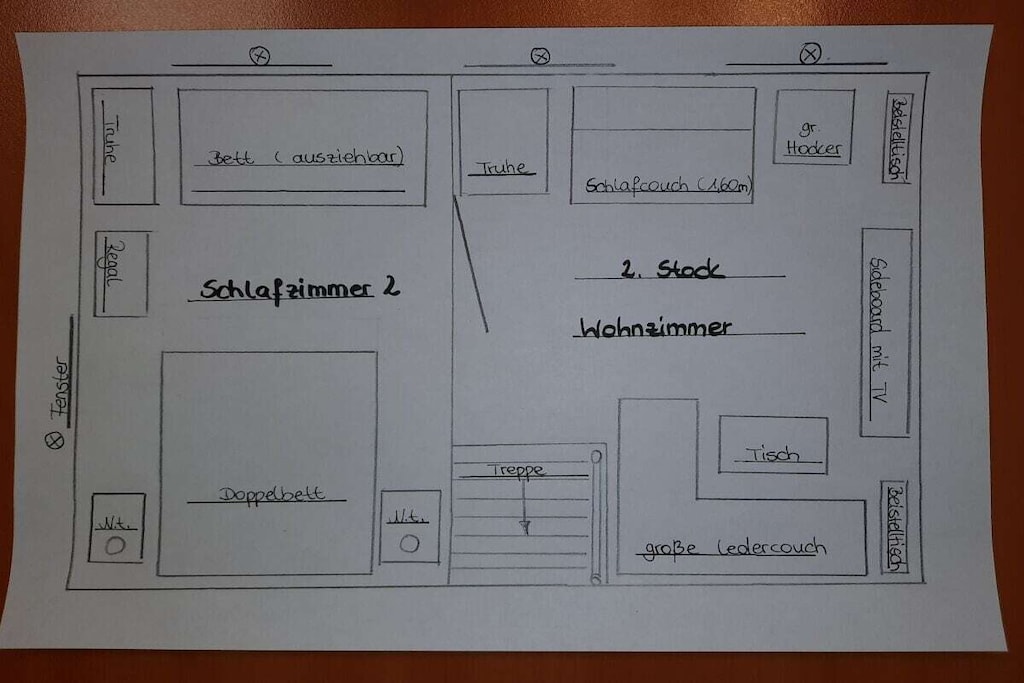 Truhe
Bett (ausziehbar)
Truhe
Schlafcouch (1,60m)
gr.
Hocker
Beistelltisch
Regal
Schlafzimmer 2
2. Stock
Wohnzimmer
Sideboard mit TV
Fenster
Doppelbett
N.t.
N.t.
Treppe
Tisch
große Ledercouch
Beistelltisch